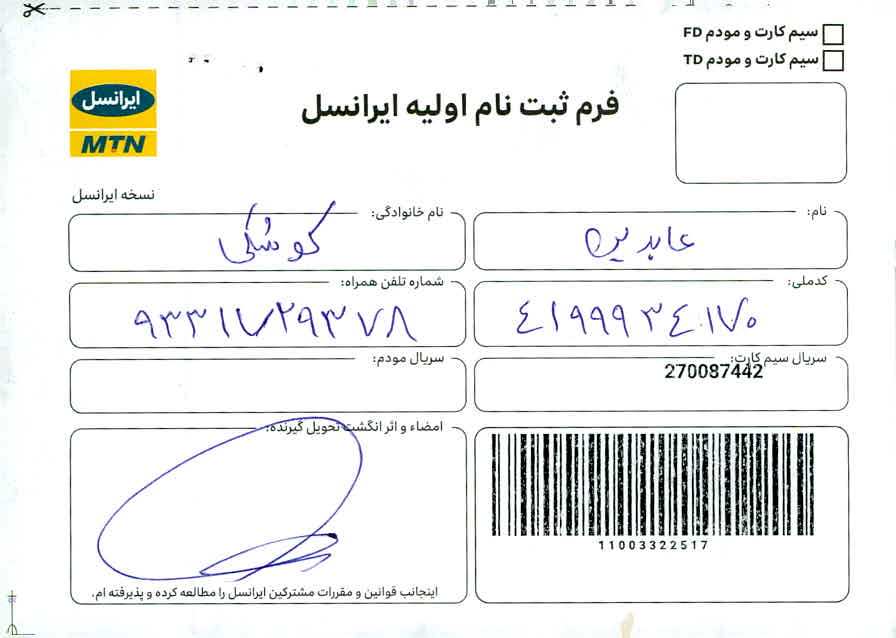 سیم کارت و مودم FD
سیم کارت و مودم TD
ایرانسل
MTN
فرم ثبت نام اولیه ایرانسل
نسخه ایرانسل
نام:
عابدین
نام خانوادگی:
کوشکی
کدملی:
٤١٩٩٩٣٤٠١٧٠
شماره تلفن همراه:
۹۳۳۱۷۲۹۳۷۸
سریال سیم کارت:
270087442
سریال مودم:
امضاء و اثر انگشت تحویل گیرنده:
11003322517
اینجانب قوانین و مقررات مشترکین ایرانسل را مطالعه کرده و پذیرفته ام.